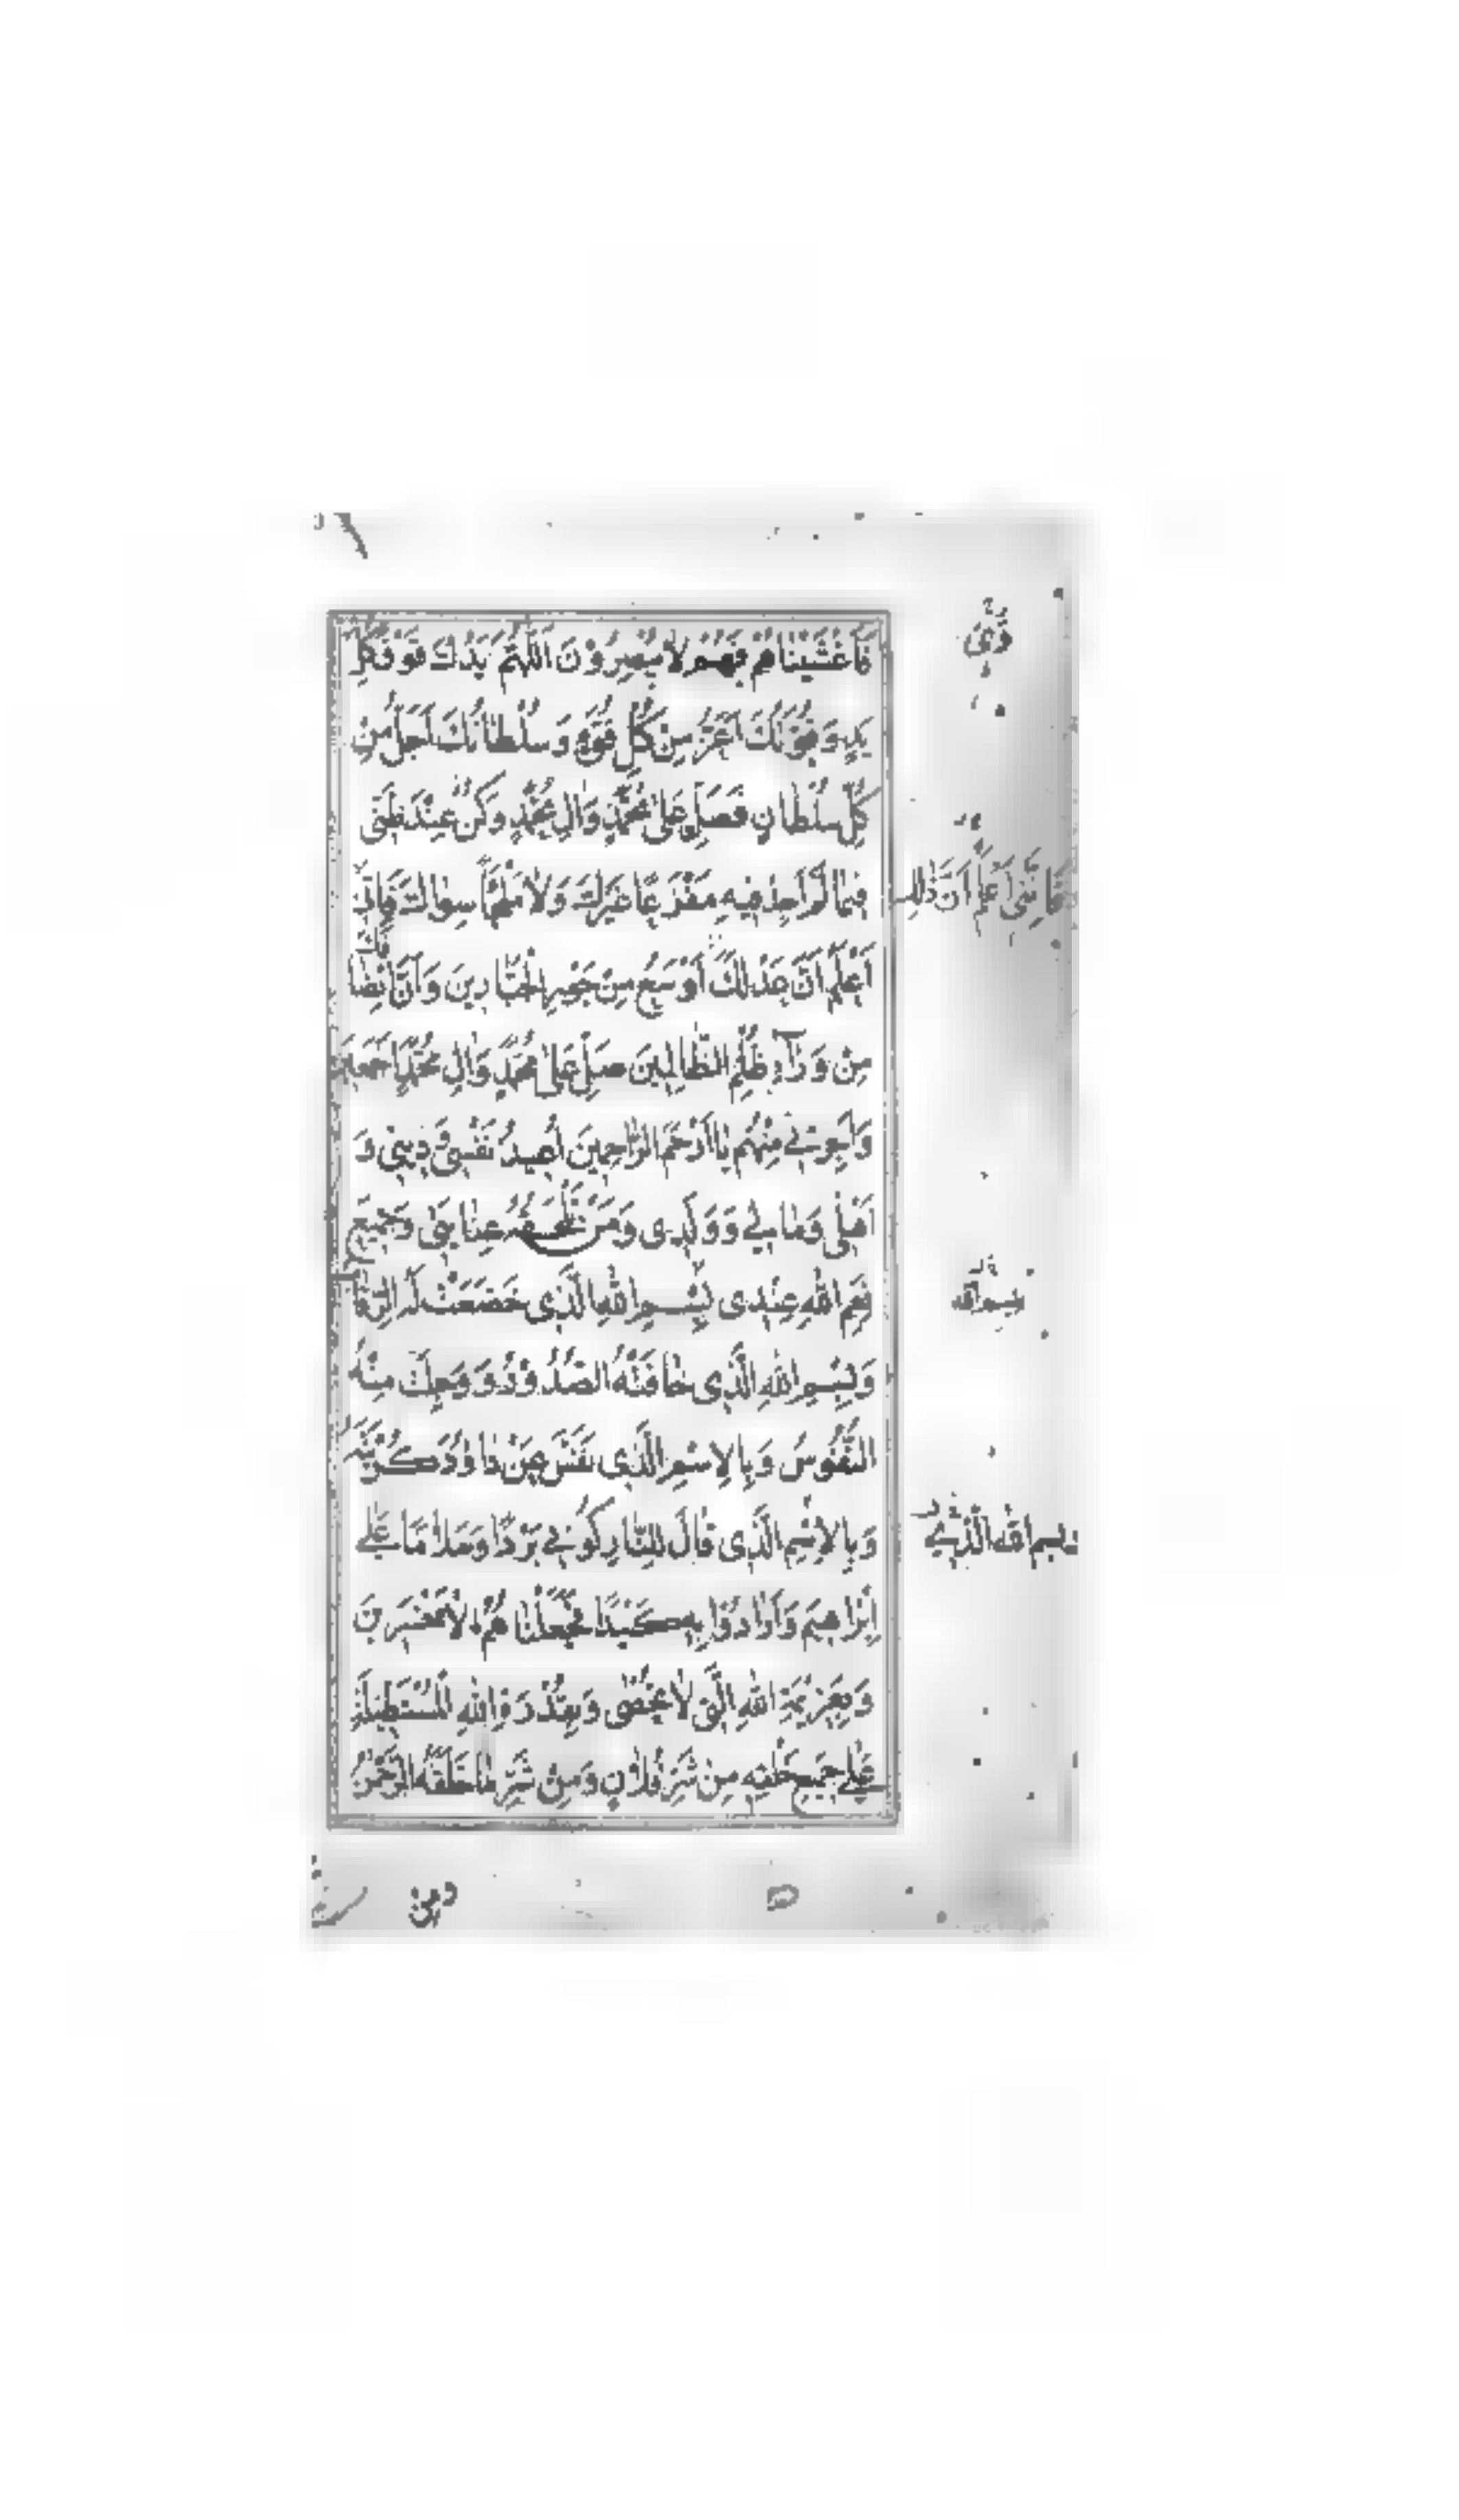 فَأَغْشَيْنَاهُمْ فَهُمْ لَا يُبْصِرُونَ اَللّٰهُمَّ يَدُكَ فَوْقَ كُلِّ
يَدٍ وَقُوَّتُكَ اَعَزُّ مِنْ كُلِّ قُوَّةٍ وَسُلْطَانُكَ اَجَلُّ مِنْ
كُلِّ سُلْطَانٍ فَصَلِّ عَلٰى مُحَمَّدٍ وَاٰلِ مُحَمَّدٍ وَكُنْ عِنْدَ ظَنّٖى
فِيمَا لَمْ اَجِدْ فِيهِ مَفْزَعًا غَيْرَكَ وَلَا مَلْجَأً سِوَاكَ فَاِنَّنِى
اَعْلَمُ اَنَّ عَدْلَكَ اَوْسَعُ مِنْ جَوْرِ الْجَبَّارِينَ وَاَنَّ اِنْصَافَكَ
مِنْ وَرَآءِ ظُلْمِ الظَّالِمِينَ صَلِّ عَلٰى مُحَمَّدٍ وَاٰلِ مُحَمَّدٍ اَجْمَعِينَ
وَاَجِرْنِى مِنْهُمْ يَا اَرْحَمَ الرَّاحِمِينَ اُعِيذُ نَفْسِى وَدِينِى وَ
اَهْلِى وَمَالِى وَوَلَدِى وَمَنْ تَلْحَقُهُ عِنَايَتِى وَجَمِيعَ
نِعَمِ اللّٰهِ عِنْدِى بِسْمِ اللّٰهِ الَّذِى خَضَعَتْ لَهُ الرِّقَابُ
وَبِسْمِ اللّٰهِ الَّذِى خَافَتْهُ الصُّدُورُ وَوَجِلَتْ مِنْهُ
النُّفُوسُ وَبِالاِسْمِ الَّذِى نَفَّسَ عَنْ دَاوُدَ كُرْبَتَهُ
وَبِالاِسْمِ الَّذِى قَالَ لِلنَّارِ كُونِى بَرْدًا وَسَلَامًا عَلٰى
اِبْرَاهِيمَ وَاَرَادُوا بِهِ كَيْدًا فَجَعَلْنَاهُمُ الْاَخْسَرِينَ
وَبِعَزِيمَةِ اللّٰهِ الَّتِى لَا تُحْصٰى وَبِقُدْرَةِ اللّٰهِ الْمُسْتَطِيلَةِ
عَلٰى جَمِيعِ خَلْقِهِ مِنْ شَرِّ فُلَانٍ وَمِنْ شَرِّ مَا خَلَقَهُ الرَّحْمٰنُ
بسم الله
بسم الله الذى